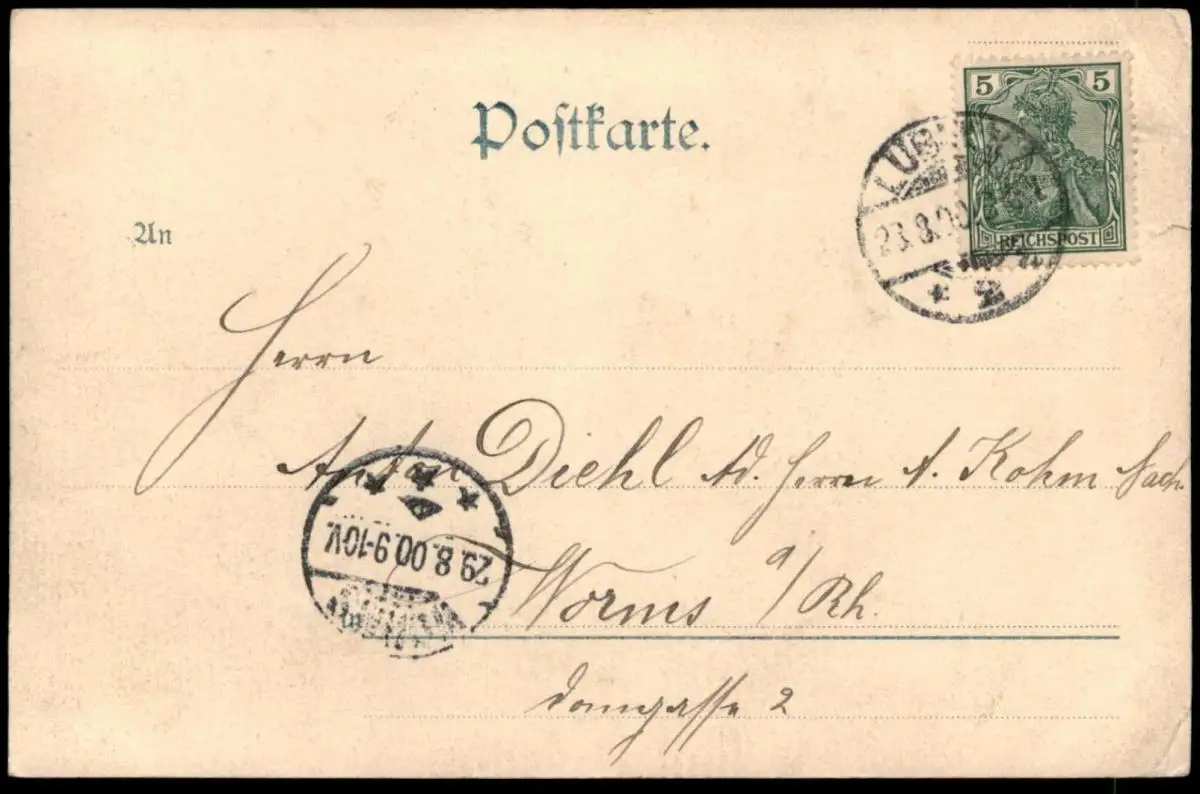 Postkarte.
5 5
REICHSPOST
An
Herrn
Anton Diehl Ad. Herrn A. Kohm Nach.
29.8.00.9-10V.
in
Worms a/Rh.
Domgasse 2